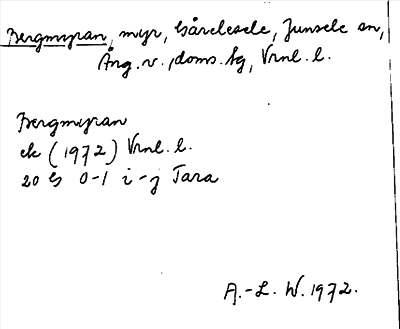 Bergmyran, myr, Gårelesele, Junsele sn,
Ång. v., doms. bg, Vrnl. l.
Bergmyran
ek (1972) Vrnl. l.
20 G 0-1 i-j Tara
A.-L. W. 1972.